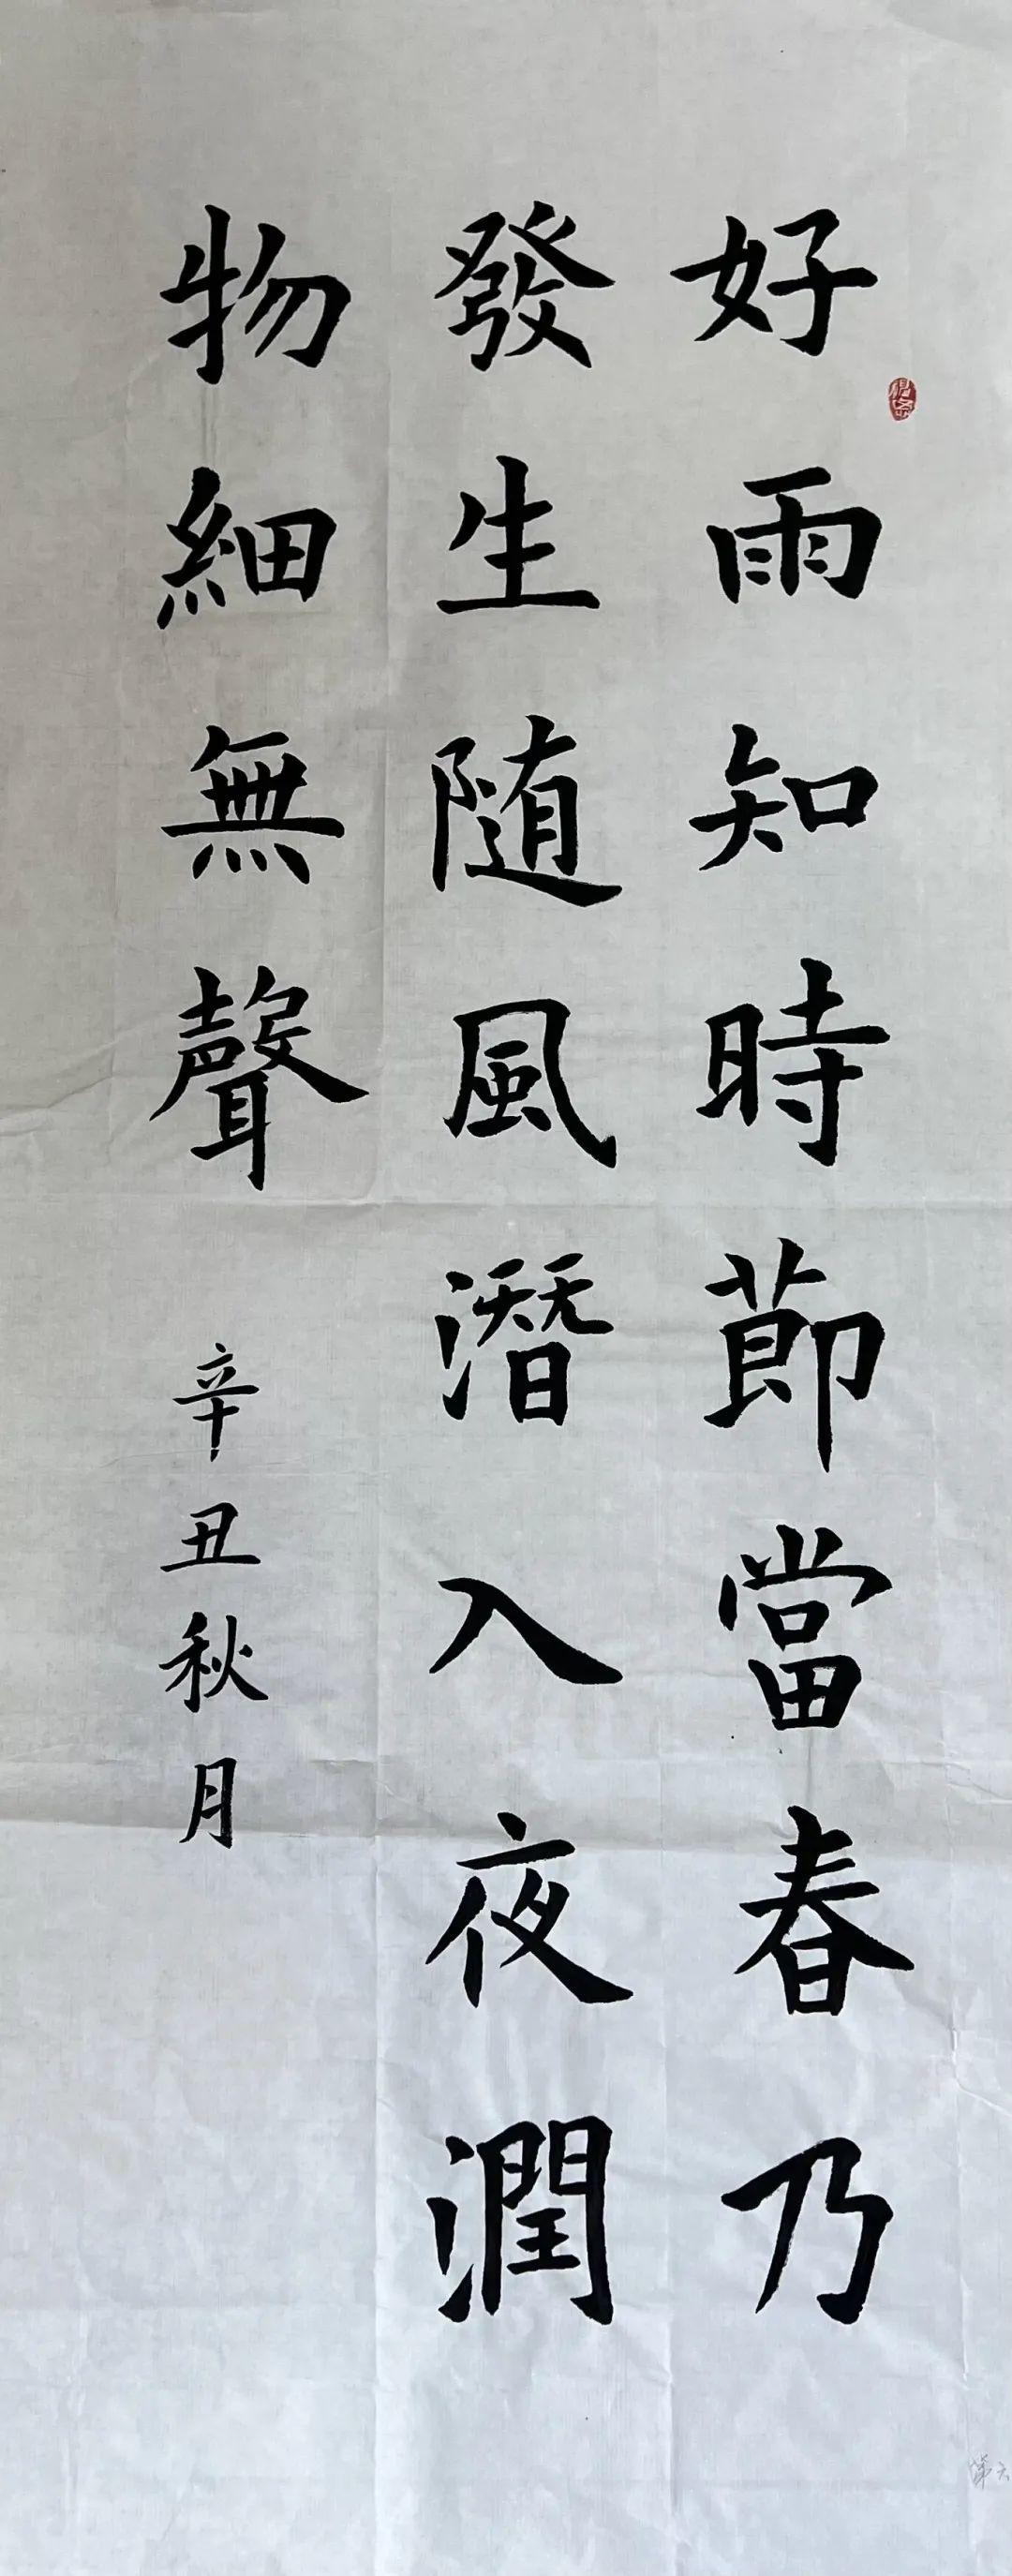 好雨知時節當春乃
發生随風潛入夜潤
物細無聲
辛丑秋月